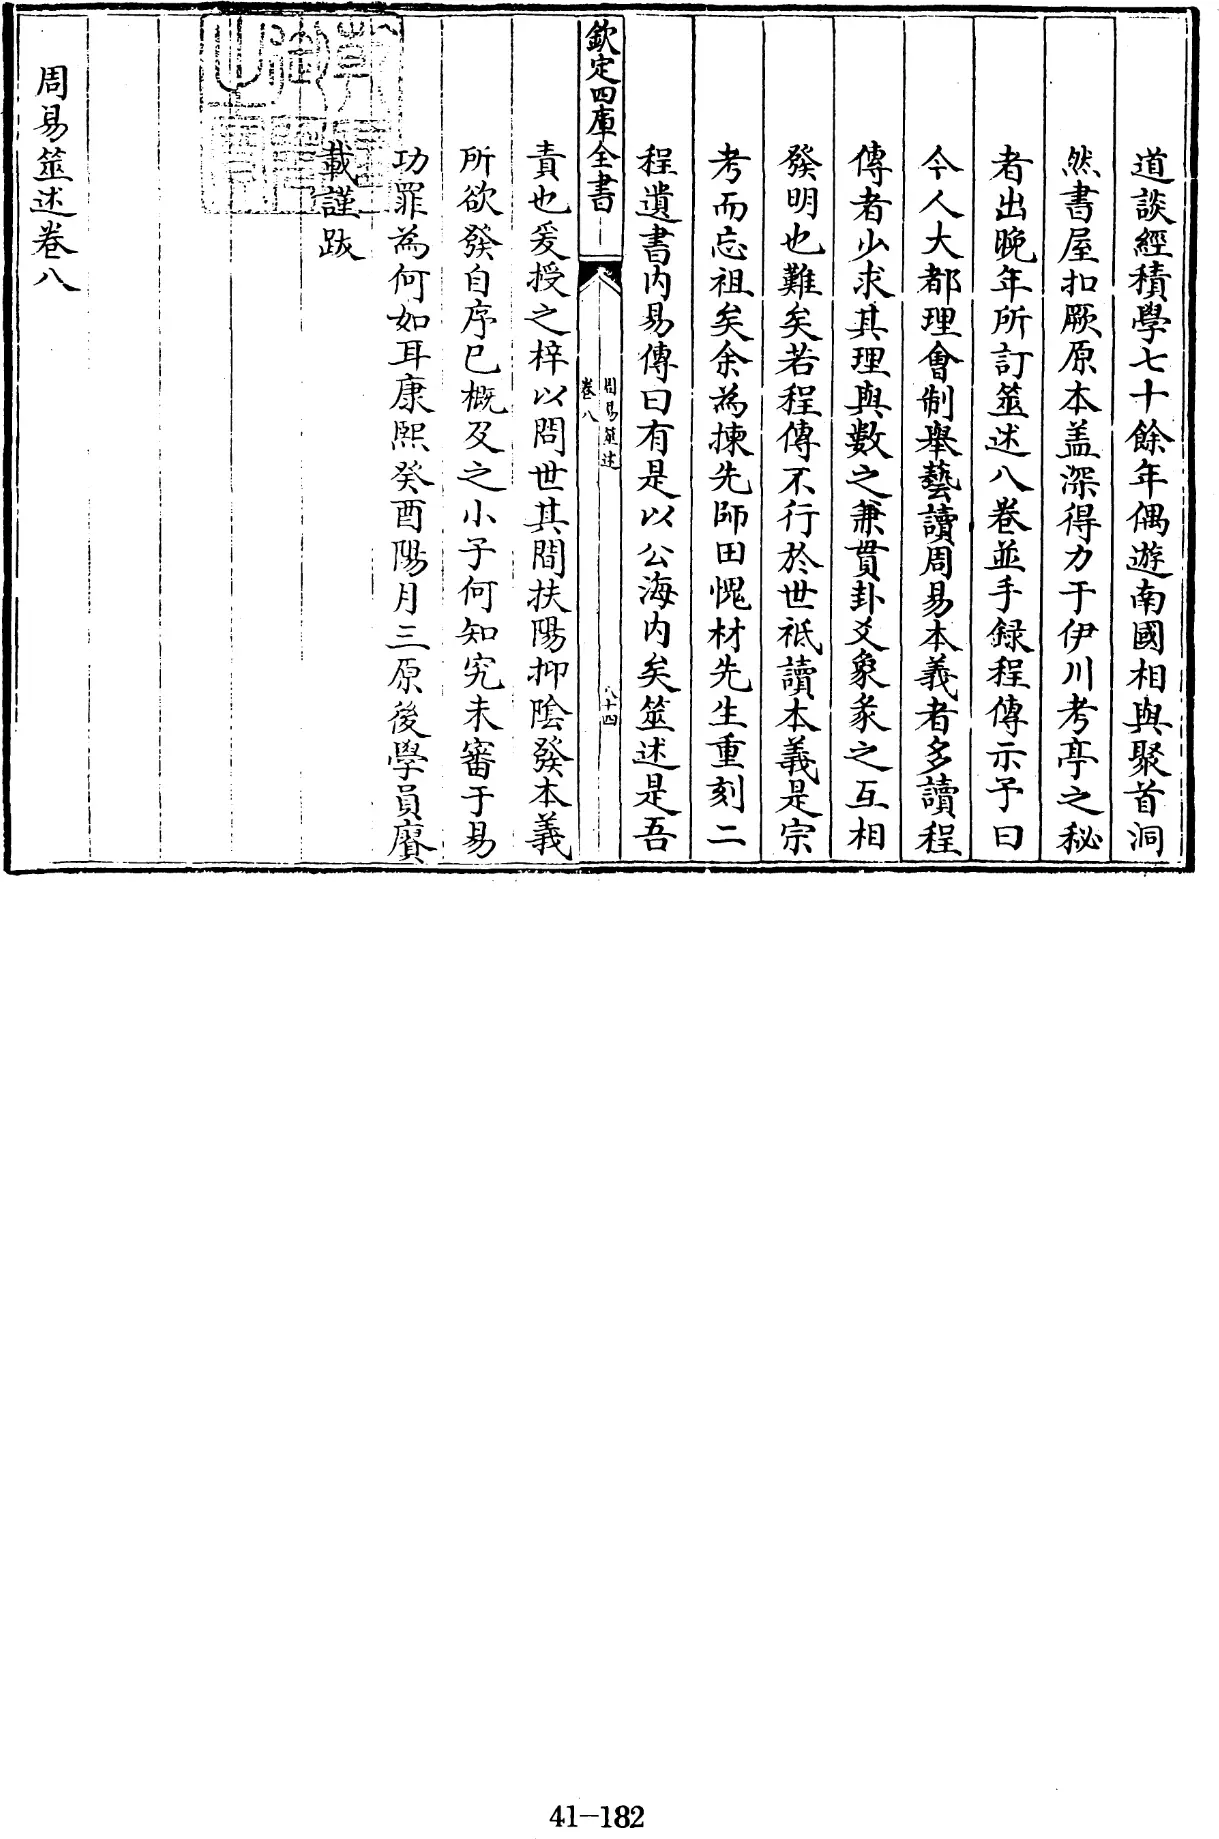 道談經積學七十餘年偶遊南國相與聚首洞
然書屋扣厥原本盖深得力于伊川考亭之秘
者出晚年所訂筮述八卷並手録程傳示予曰
今人大都理㑹制舉藝讀周易本義者多讀程
傳者少求其理與數之兼貫卦爻象彖之互相
發明也難矣若程傳不行於世祗讀本義是宗
考而忘祖矣余為揀先師田愧材先生重刻二
程遺書内易傳曰有是以公海内矣筮述是吾
欽定四庫全書
周易筮述
卷八
八十四
責也爰授之梓以問世其間扶陽抑陰發本義
所欲發自序已概及之小子何知究未審于易
功罪為何如耳康熙癸酉陽月三原後學員賡
載謹跋
周易筮述卷八
41-182